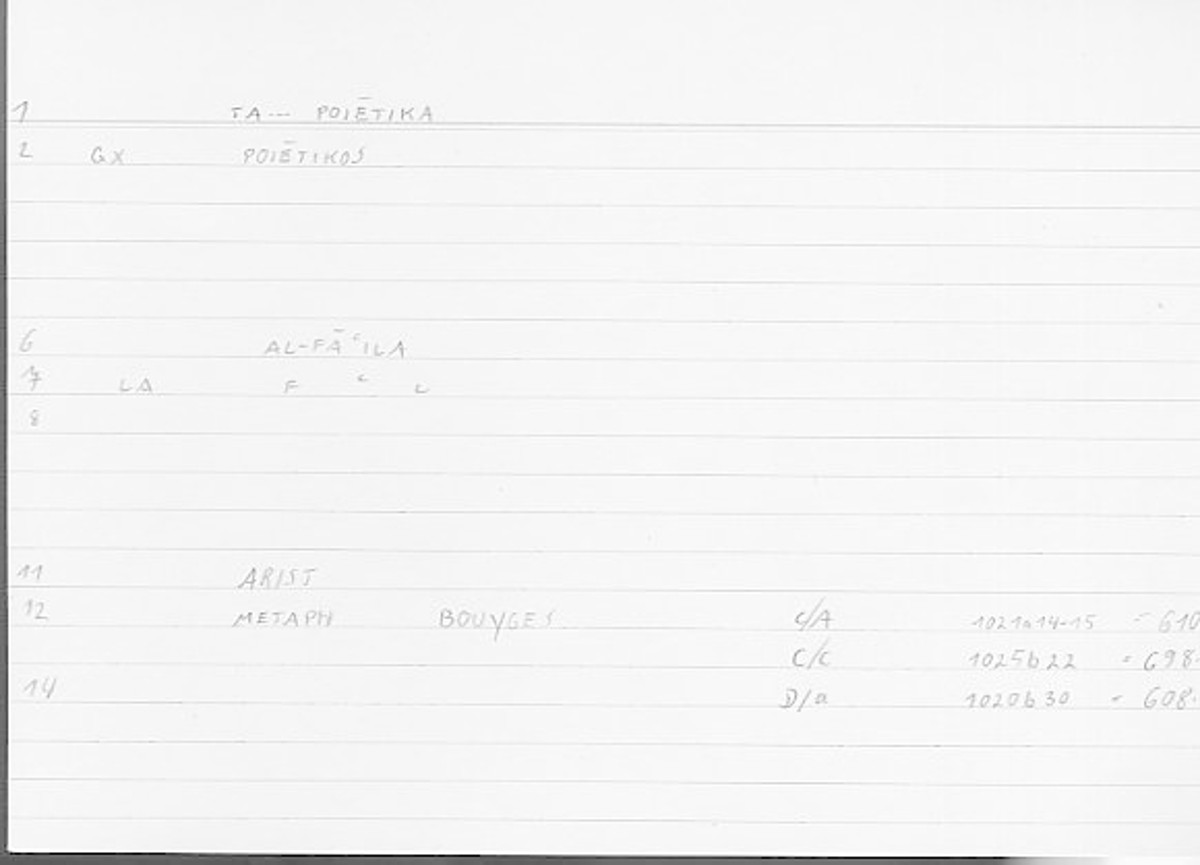 1 TA--- POIĒTIKA
2 GX POIĒTIKOS
6 AL-FĀʿILA
7 LA F ʿ L
8
11 ARIST
12 METAPH BOUYGES C/A 1021a14-15 = 610
C/C 1025b22 = 698.
14 D/a 1020b30 = 608.